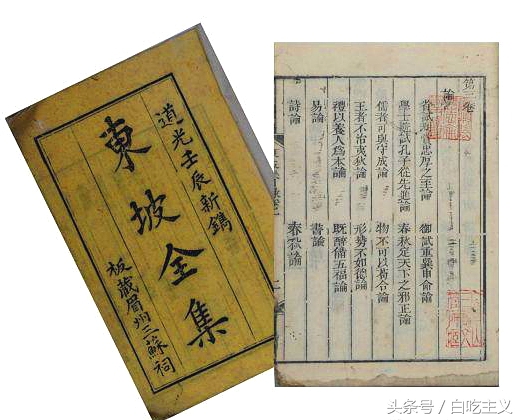 道光壬辰新鐫
東坡全集
板藏眉州三蘇祠
第二卷
論
省試刑賞忠厚之至論 御試重巽申命論
學士院試孔子從先進論 春秋定天下之邪正論
儒者可與守成論 物不可以苟合論
王者不治夷狄論 形勢不如德論
禮以養人爲本論 既醉備五福論
易論 書論
詩論 春秋論
头条号 / 白吃主义